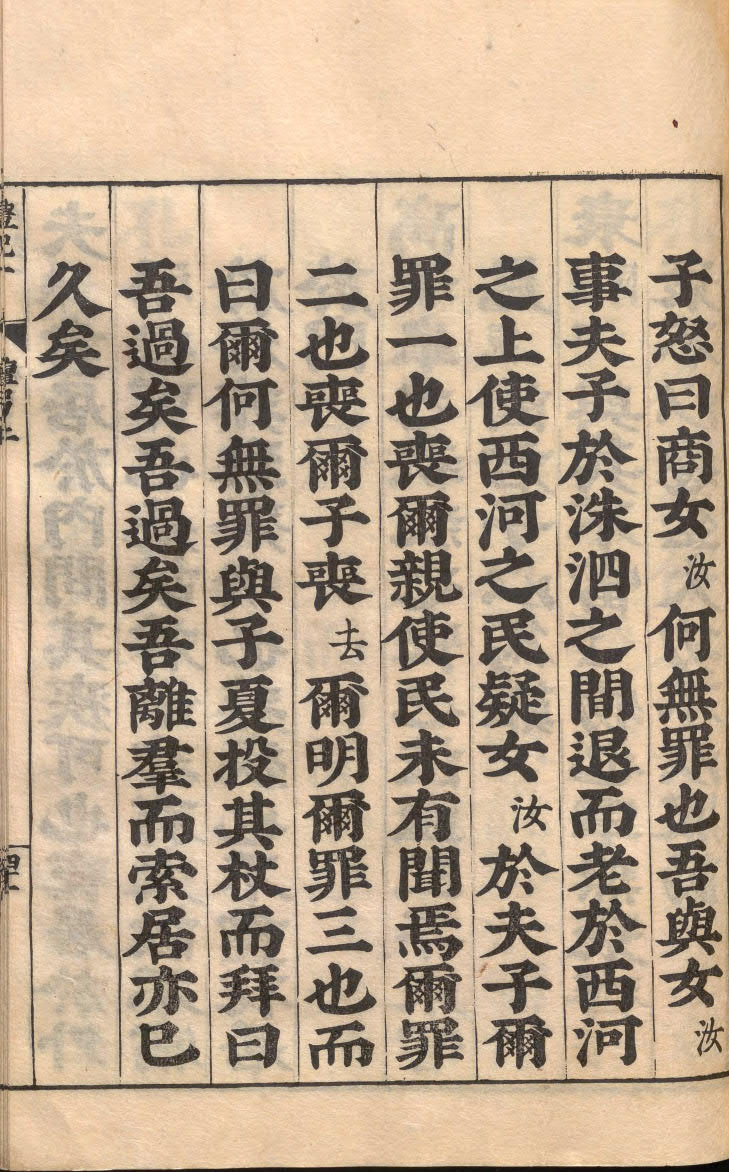 子怒曰商女汝何無罪也吾與女汝
事夫子於洙泗之間退而老於西河
之上使西河之民疑女汝於夫子爾
罪一也喪爾親使民未有聞焉爾罪
二也喪爾子喪去爾明爾罪三也而
曰爾何無罪與子夏投其杖而拜曰
吾過矣吾過矣吾離羣而索居亦已
久矣